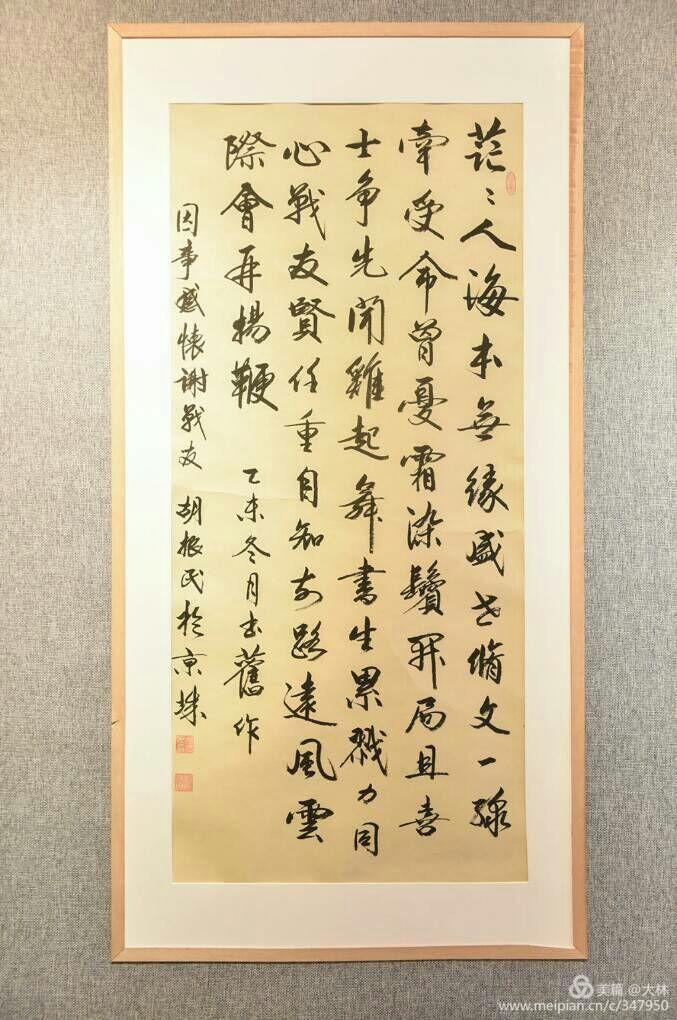 茫〻人海本無緣盛世脩文一線
牽受命曾憂霜染鬢開局且喜
士争先聞雞起舞書生累戮力同
心戰友賢任重自知前路遠風雲
際會再揚鞭
乙未冬月書舊作
因事感懷謝戰友 胡振民於京城
美篇 @大林
www.meipian.cn/c/347950